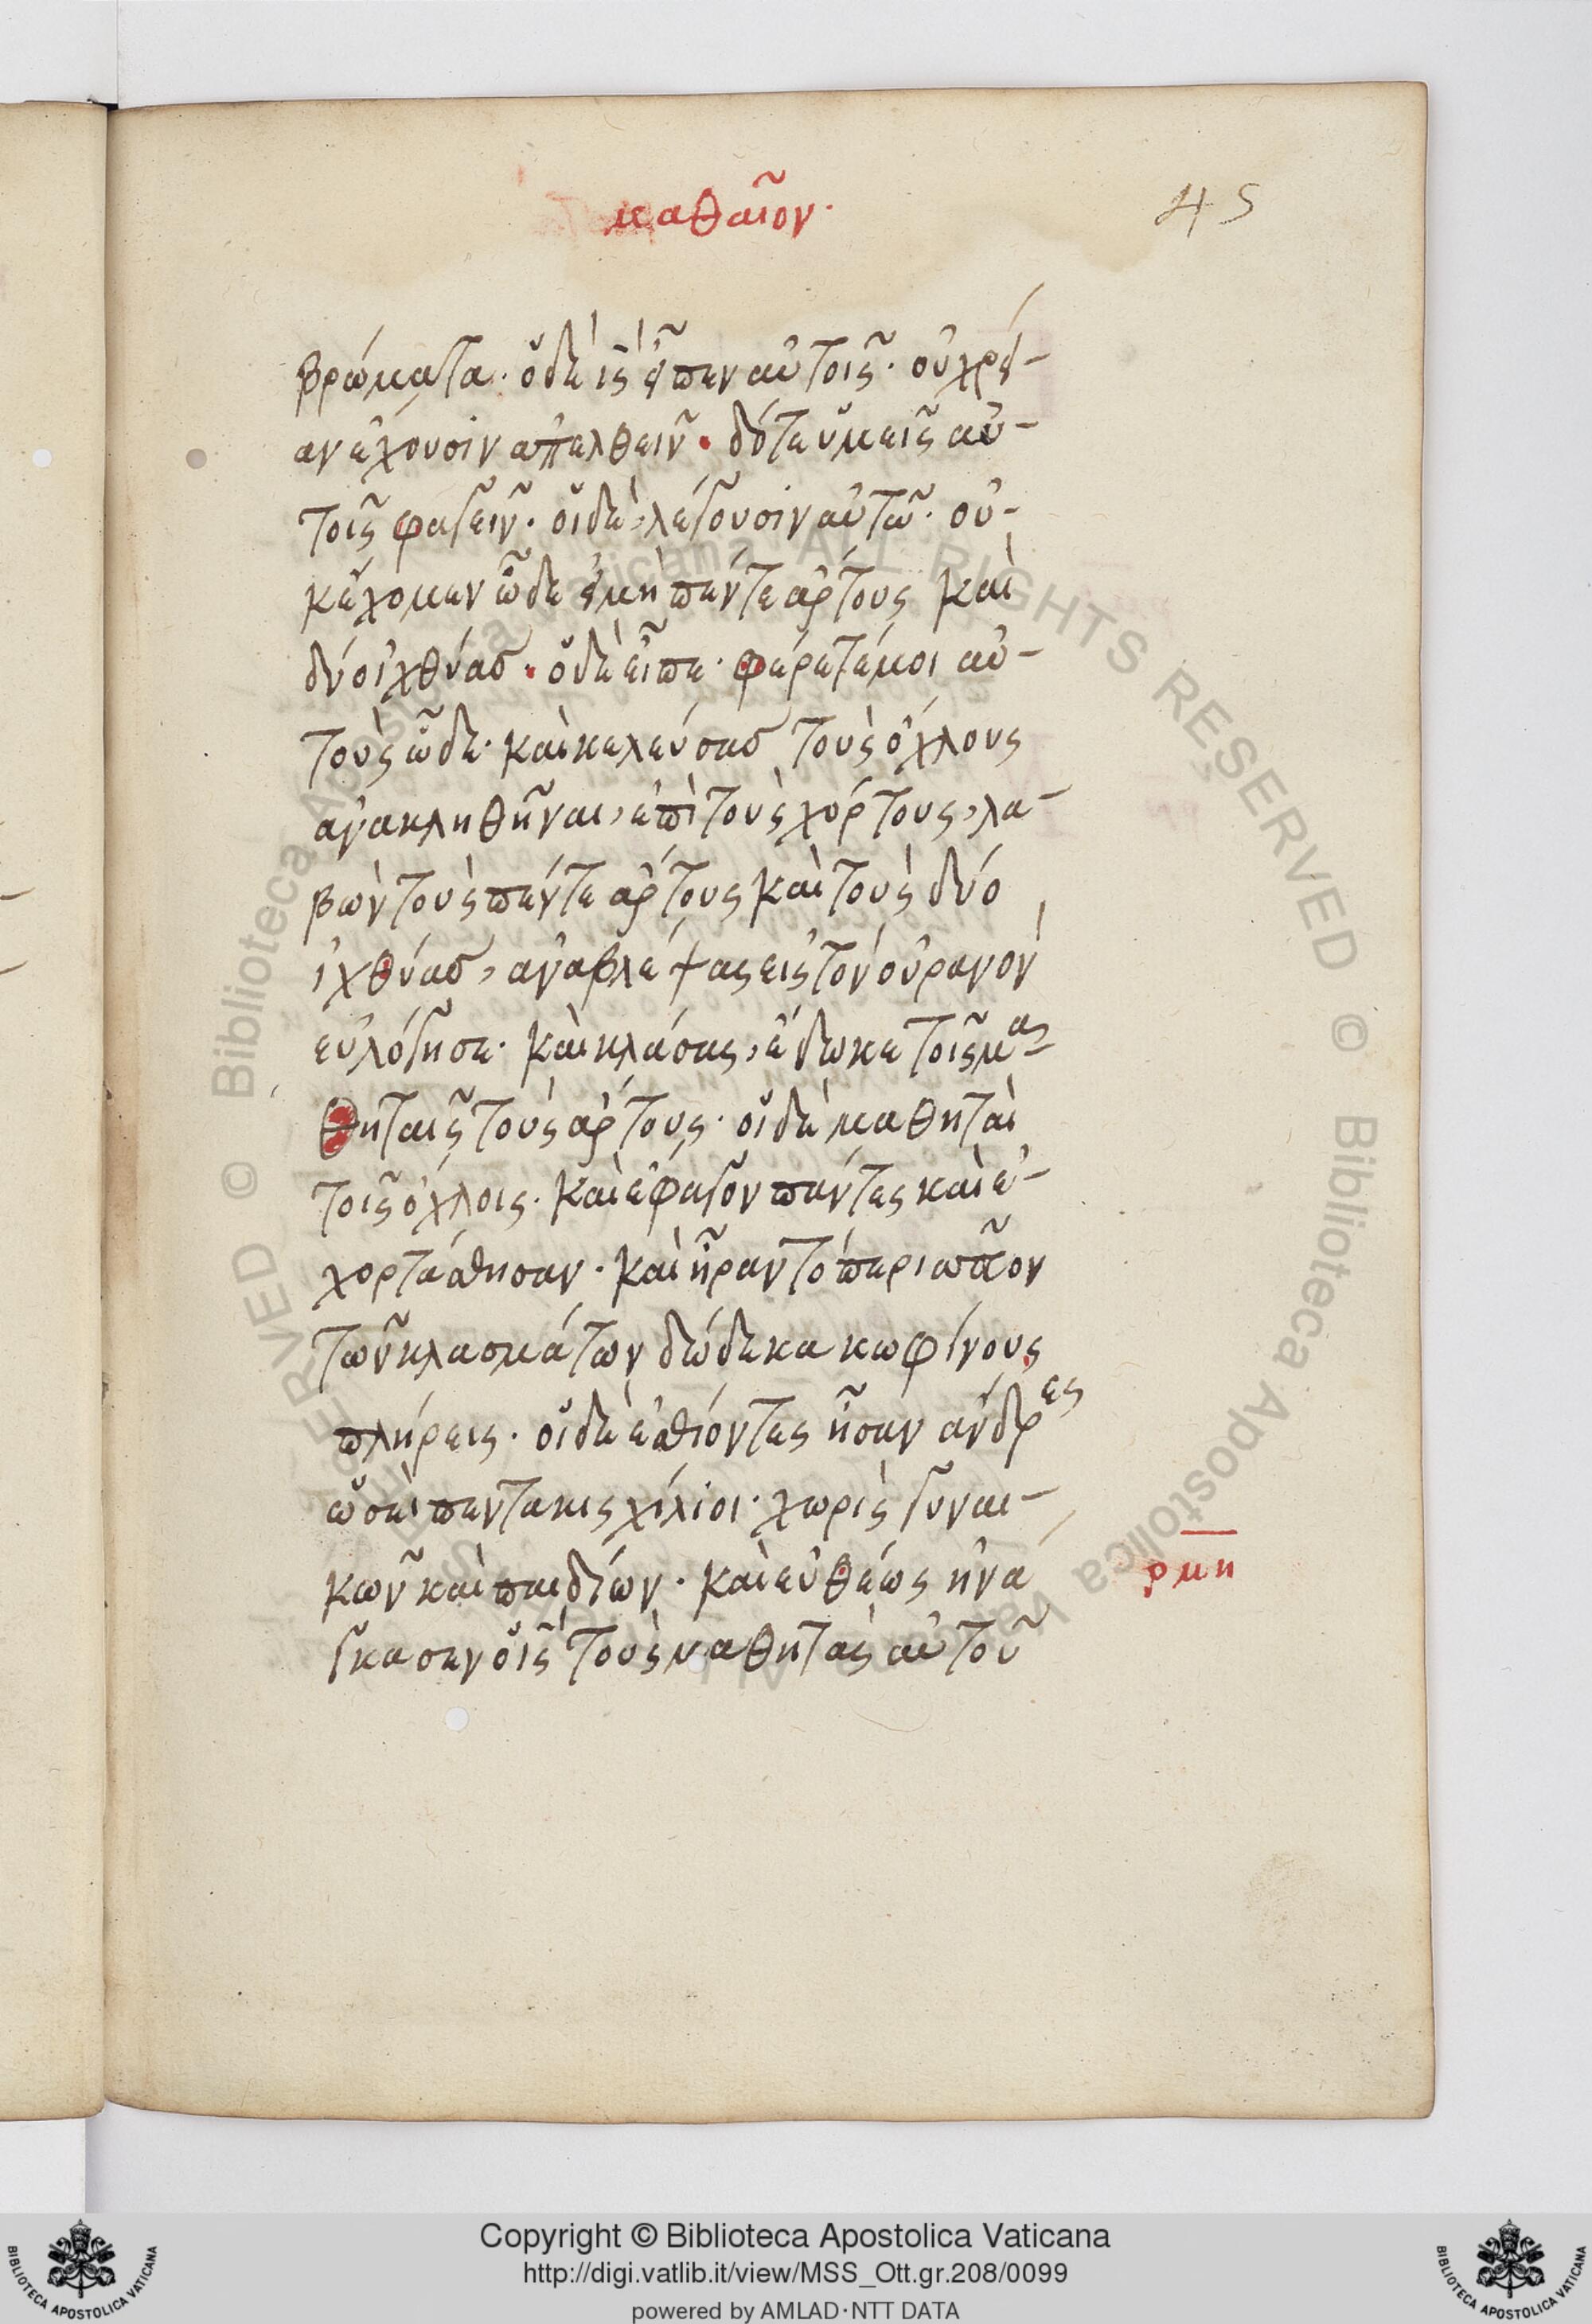 μαθαῖον·
45
βρώματα· ὁ δὲ ις̅ εἶπεν αὐτοῖς· οὐ χρεί-
αν ἔχουσιν ἀπελθεῖν· δότε ὑμεῖς αὐ-
τοῖς φαγεῖν· οἱ δὲ λέγουσιν αὐτῶ· οὐ-
κ ἔχομεν ὧδε εἰ μὴ πέντε ἄρτους καὶ
δύο ἰχθύας· ὁ δὲ εἶπε· φέρετέ μοι αὐ-
τοὺς ὧδε· καὶ κελεύσας τοὺς ὄχλους
ἀνακληθῆναι, ἐπὶ τοὺς χόρτους, λα-
βὼν τοὺς πέντε ἄρτους καὶ τοὺς δύο
ἰχθύας, ἀναβλέψας εἰς τὸν οὐρανὸν
εὐλόγησε· καὶ κλάσας, ἔδωκε τοῖς μα-
θηταῖς τοὺς ἄρτους· οἱ δὲ μαθηταὶ
τοῖς ὄχλοις· καὶ ἔφαγον πάντες καὶ ἐ-
χορτάσθησαν· καὶ ἦραν τὸ περισσῶον
τῶν κλασμάτων δώδεκα κωφίνους
πλήρεις· οἱ δὲ ἐσθίοντες ἦσαν ἄνδρες
ὡσεὶ πεντακισχίλιοι· χωρὶς γυναι-
κῶν καὶ παιδίων· καὶ εὐθέως ἠνά
γκασεν ὁ ις̅ τοὺς μαθητὰς αὐτοῦ
ρμη
RESERVED © Biblioteca Apostolica Vaticana ALL RIGHTS RESERVED © Biblioteca Apostolica Vaticana
Copyright © Biblioteca Apostolica Vaticana
http://digi.vatlib.it/view/MSS_Ott.gr.208/0099
powered by AMLAD·NTT DATA
BIBLIOTECA APOSTOLICA VATICANA
BIBLIOTECA APOSTOLICA VATICANA